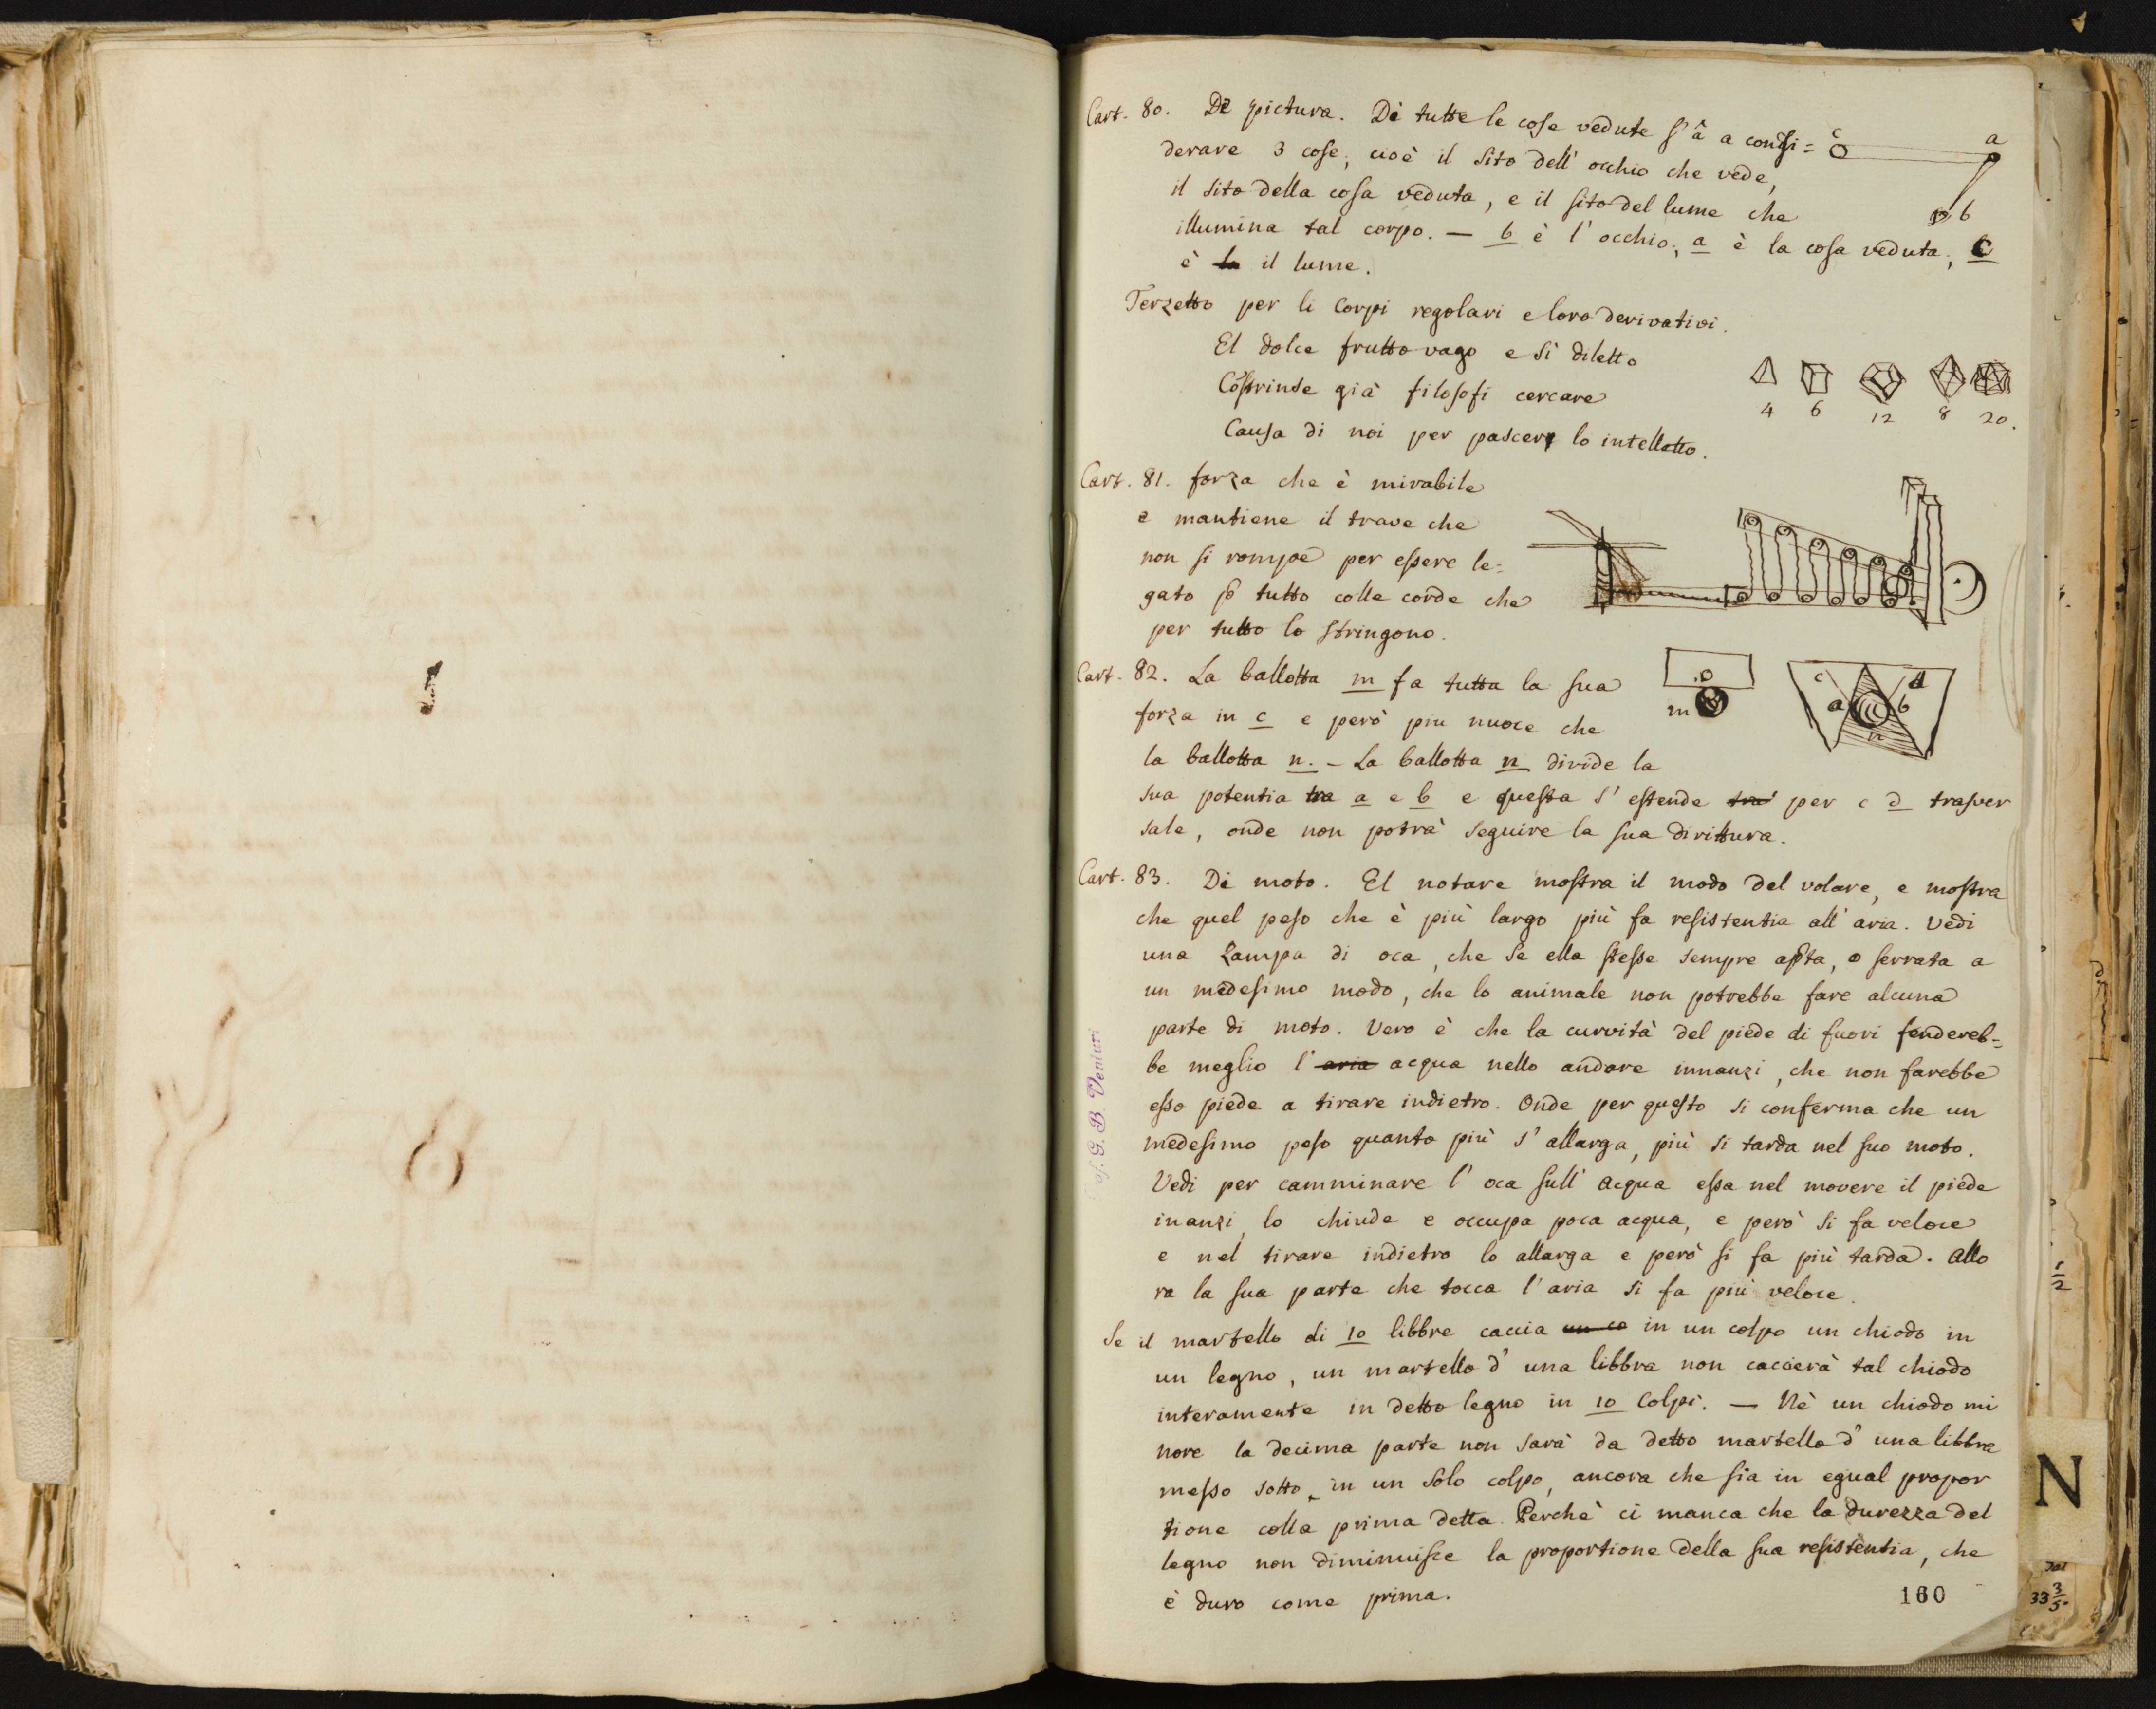 Cart. 80. De pictura. Di tutte le cose vedute s'à a consi=
derare 3 cose, cioè il sito dell' occhio che vede,
il sito della cosa veduta, e il sito del lume che
illumina tal corpo. — b è l' occhio, a è la cosa veduta, c
è la il lume.
c a
b
Terzetto per li Corpi regolari e loro derivativi.
El dolce frutto vago e sì diletto
Costrinse già filosofi cercare
Causa di noi per pascere lo intelletto.
4 6 12 8 20.
Cart. 81. forza che è mirabile
e mantiene il trave che
non si rompe per essere le=
gato p tutto colle corde che
per tutto lo stringono.
Cart. 82. La ballotta m fa tutta la sua
forza in c e però più nuoce che
la ballotta n. – La ballotta n divide la
sua potentia tra a e b e questa s' estende tra per c d trasver
sale, onde non potrà seguire la sua dirittura.
c m
c d
a b
n
Cart. 83. Di moto. El notare mostra il modo del volare, e mostra
che quel peso che è più largo più fa resistentia all' aria. Vedi
una Zampa di oca, che se ella stesse sempre apta, o serrata a
un medesimo modo, che lo animale non potrebbe fare alcuna
parte di moto. Vero è che la curvità del piede di fuori fendereb=
be meglio l' aria acqua nello andare innanzi, che non farebbe
esso piede a tirare indietro. Onde per questo si conferma che un
medesimo peso quanto più s' allarga, più si tarda nel suo moto.
Vedi per camminare l' oca sull' acqua essa nel movere il piede
inanzi, lo chiude e occupa poca acqua, e però si fa veloce
e nel tirare indietro lo allarga e però si fa più tarda. Allo
ra la sua parte che tocca l' aria si fa più veloce.
Se il martello di 10 libbre caccia un co in un colpo un chiodo in
un legno, un martello d' una libbra non caccierà tal chiodo
interamente in detto legno in 10 Colpi. — Nè un chiodo mi
nore la decima parte non sarà da detto martello d' una libbra
messo sotto in un solo colpo, ancora che sia in egual propor
tione colla prima detta. Perchè ci manca che la durezza del
legno non diminuisce la proportione della sua resistentia, che
è duro come prima.
160
of. G. B. Venturi
1/2
N
33 3/5.